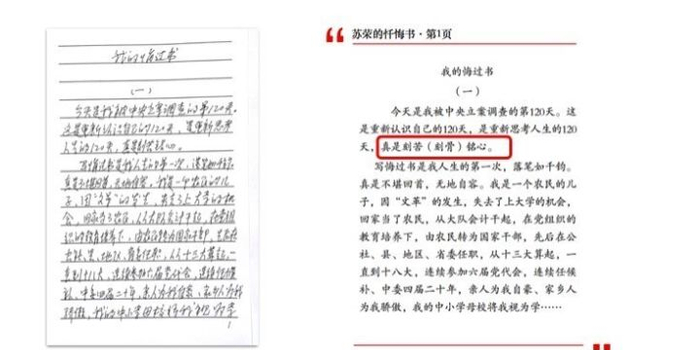 我的悔过书
（一）
今天是我被中央立案调查的第120天。
这是重新认识自己的120天，是重新思考
人生的120天，真是刻苦铭心。
写悔过书是我人生的第一次，落笔如千钧
真是不堪回首，无地自容。我是一个农民的儿
子，因“文革”的发生，失去了上大学的机
会，回家当了农民，从大队会计干起，在党组
织的教育培养下，由农民转为国家干部，先后在
公社、县、地区、省委任职，从十三大算起，一
直到十八大，连续参加六届党代会，连续任候
补、中委四届二十年，亲人为我自豪、家乡人为我
骄傲，我的中小学母校将我视为学
1
苏荣的忏悔书·第1页
我的悔过书
（一）
今天是我被中央立案调查的第120天。这
是重新认识自己的120天，是重新思考人生的120
天，真是刻苦（刻骨）铭心。
写悔过书是我人生的第一次，落笔如千钧。
真是不堪回首，无地自容。我是一个农民的儿
子，因“文革”的发生，失去了上大学的机会，
回家当了农民，从大队会计干起，在党组织的
教育培养下，由农民转为国家干部，先后在公
社、县、地区、省委任职，从十三大算起，一
直到十八大，连续参加六届党代会，连续任候
补、中委四届二十年，亲人为我自豪、家乡人
为我骄傲，我的中小学母校将我视为学……